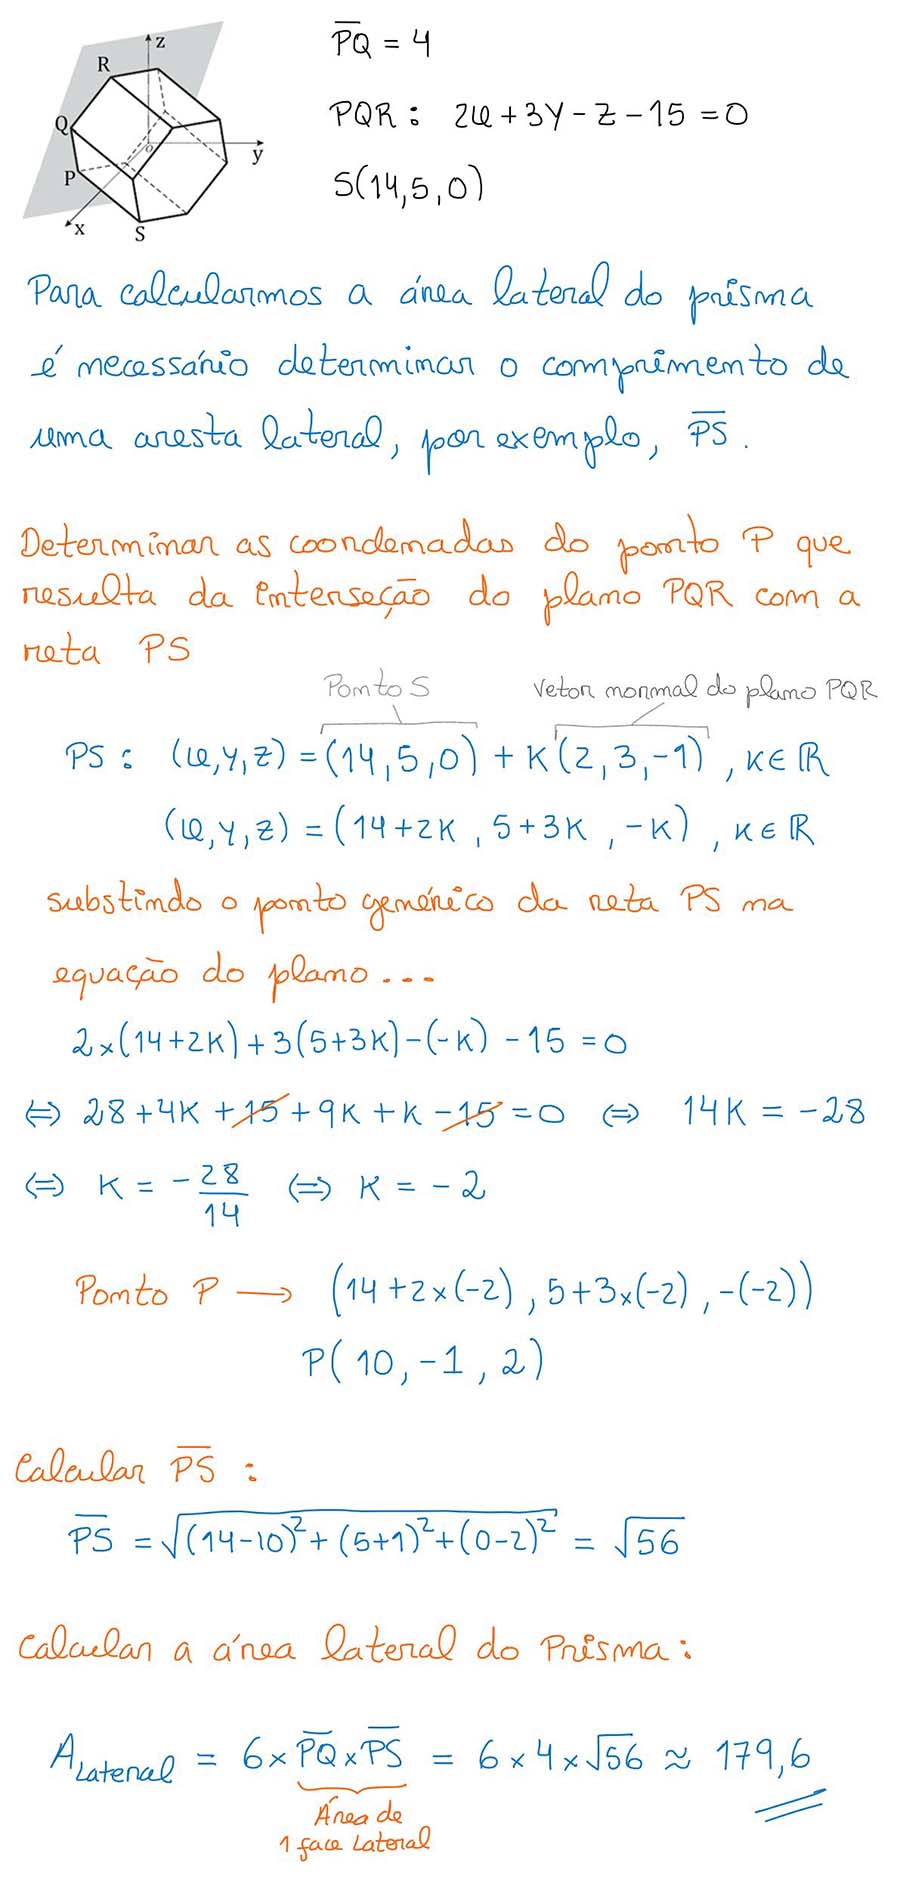 z
R
Q
o
y
P
x
S
P̅Q̅ = 4
PQR : 2x+3y-z-15=0
S(14,5,0)
Para calcularmos a área lateral do prisma
é necessário determinar o comprimento de
uma aresta lateral, por exemplo, P̅S̅.
Determinar as coordenadas do ponto P que
resulta da interseção do plano PQR com a
reta PS
Ponto S
Vetor normal do plano PQR
PS : (x,y,z) = (14,5,0) + K(2,3,-1), K∈ℝ
(x,y,z) = (14+2K, 5+3K, -K), K∈ℝ
substindo o ponto genérico da reta PS na
equação do plano...
2×(14+2K)+3(5+3K)-(-K)-15=0
⇔ 28+4K+15+9K+K-15=0 ⇔ 14K = -28
⇔ K = -28/14 ⇔ K = -2
Ponto P → (14+2×(-2), 5+3×(-2), -(-2))
P(10, -1, 2)
Calcular P̅S̅ :
P̅S̅ = √((14-10)²+(5+1)²+(0-2)²) = √56
Calcular a área lateral do Prisma:
A Lateral = 6×P̅Q̅×P̅S̅ = 6×4×√56 ≈ 179,6
Área de
1 face Lateral